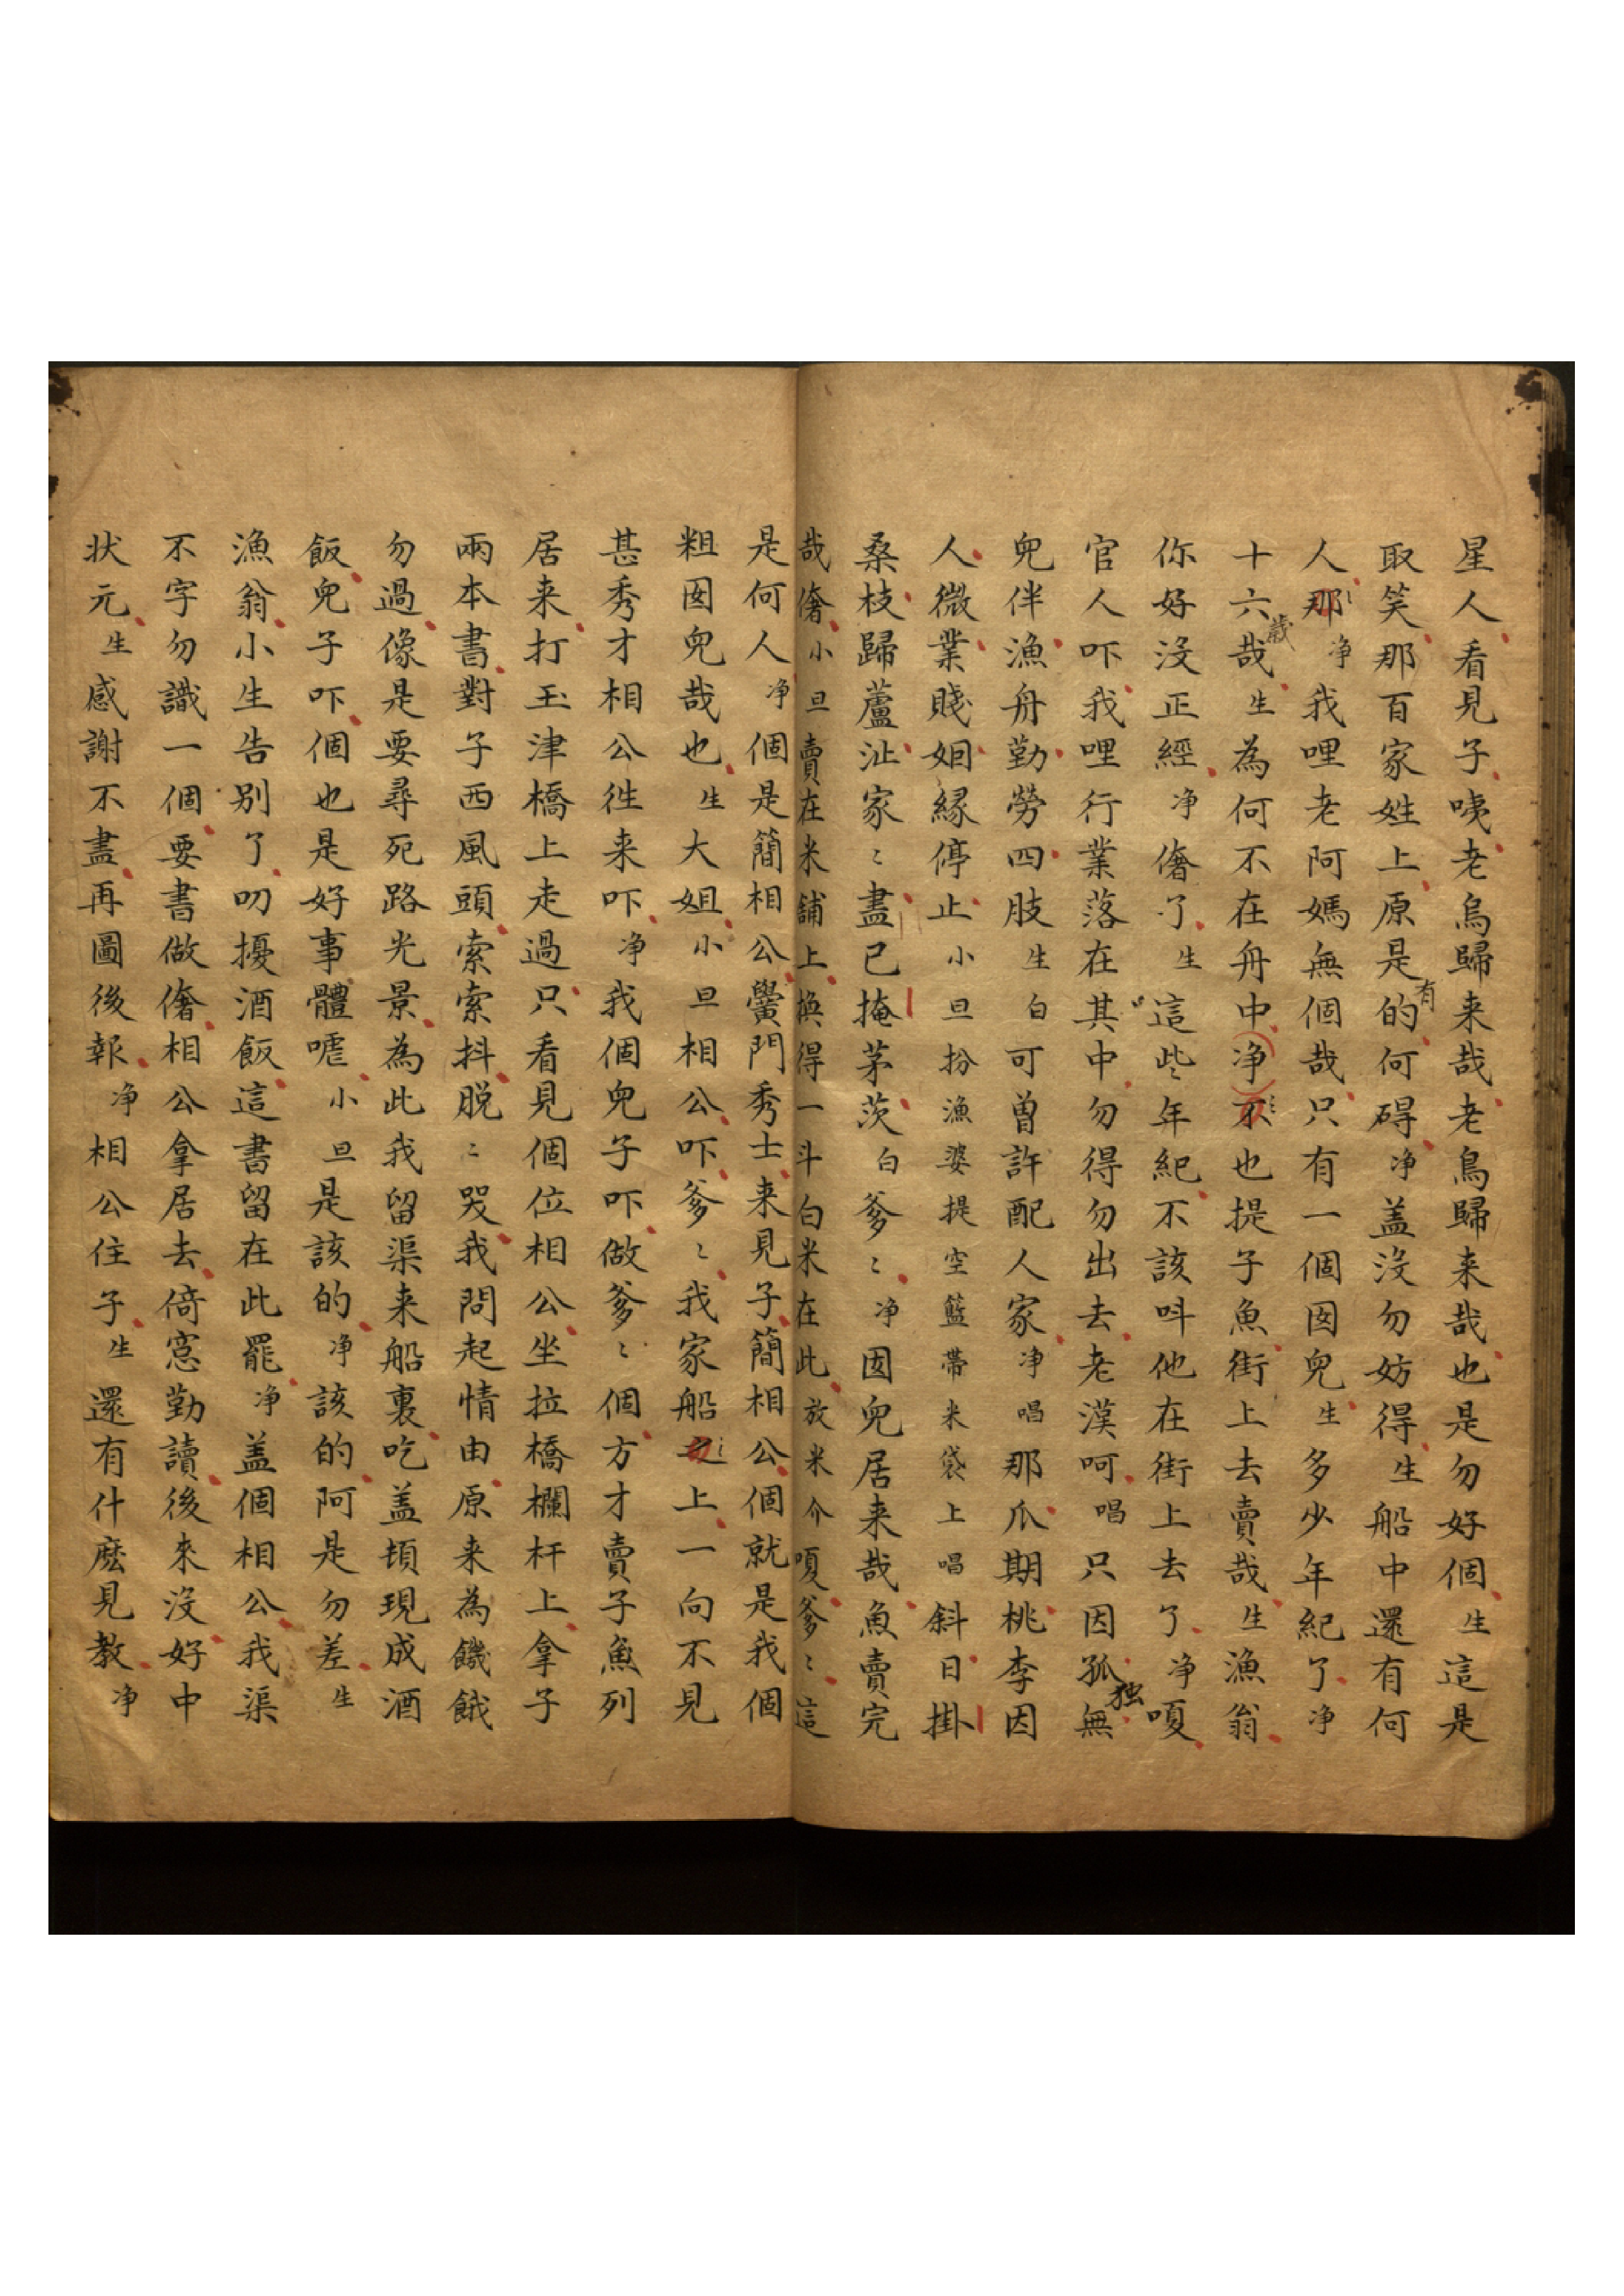 星人看見子咦老烏歸来哉老烏歸来哉也是勿好個生這是
取笑那百家姓上原是有的何碍净盖没勿妨得生船中還有何
人那净我哩老阿媽無個哉只有一個囡兒生多少年紀了净
十六歲哉生為何不在舟中净不也提子魚街上去賣哉生漁翁
你好没正經净僽了生這些年紀不該呌他在街上去了净嗄
官人吓我哩行業落在其中勿得勿出去老漢呵唱只因孤独無
兒伴漁舟勤勞四肢生白可曾許配人家净唱那爪期桃李因
人微業賤姻緣停止小旦扮漁婆提空籃帶米袋上唱斜日掛
桑枝歸蘆沚家〻盡已掩茅茨白爹〻净囡兒居来哉魚賣完
哉小旦賣在米舖上換得一斗白米在此放米介嗄爹〻這
是何人净個是簡相公黌門秀士来見子簡相公個就是我個
粗囡兒哉也生大姐小旦相公吓爹〻我家船之上一向不見
甚秀才相公徃来吓净我個兒子吓做爹〻個方才賣子魚列
居来打玉津橋上走過只看見個位相公坐拉橋欄杆上拿子
兩本書對子西風頭索索抖脱〻哭我問起情由原来為饑餓
勿過像是要尋死路光景為此我留渠来船裏吃盖頓現成酒
飯兒子吓個也是好事體嘘小旦是該的净該的阿是勿差生
漁翁小生告别了叨擾酒飯這書留在此罷净盖個相公我渠
不字勿識一個要書做奢相公拿居去倚窓勤讀後來没好中
状元生感謝不盡再圖後報净相公住子生還有什麽見教净